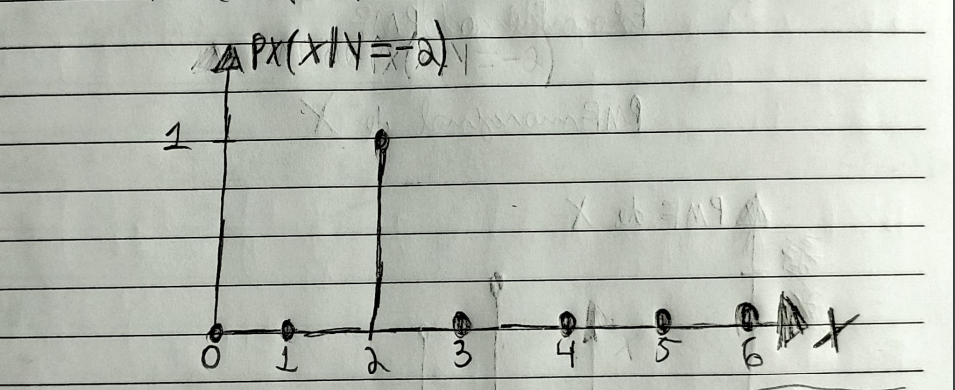 PX(X|Y=-2)
1
0 1 2 3 4 5 6 X